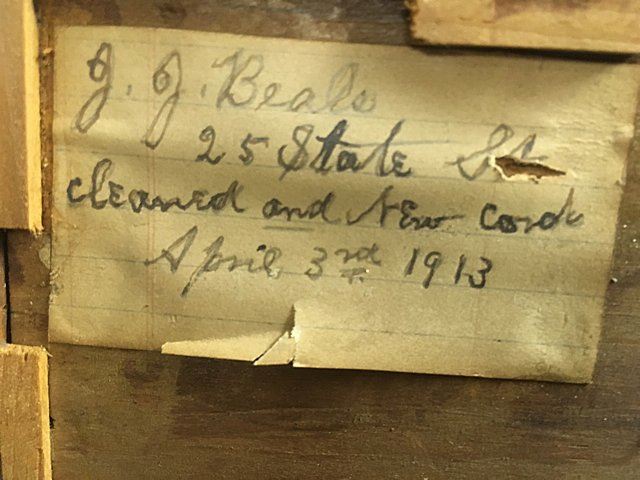 J. J. Beals
25 State St
cleaned and New cord
April 3rd 1913